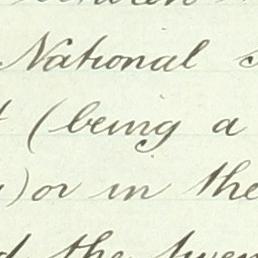 National
(being a
) or in the
the